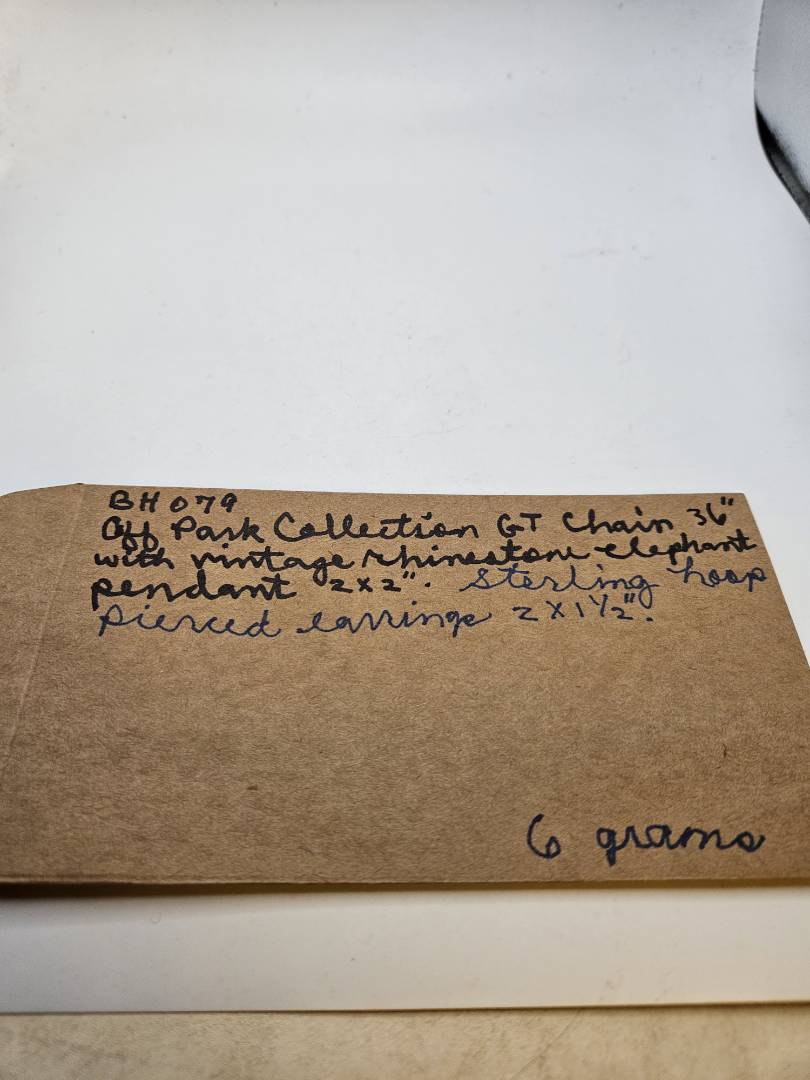 BH 079
Off Park Collection GT Chain 36"
with vintage rhinestone elephant
pendant 2x2". Sterling hoop
pierced earrings 2 X 1 1/2".
6 grams